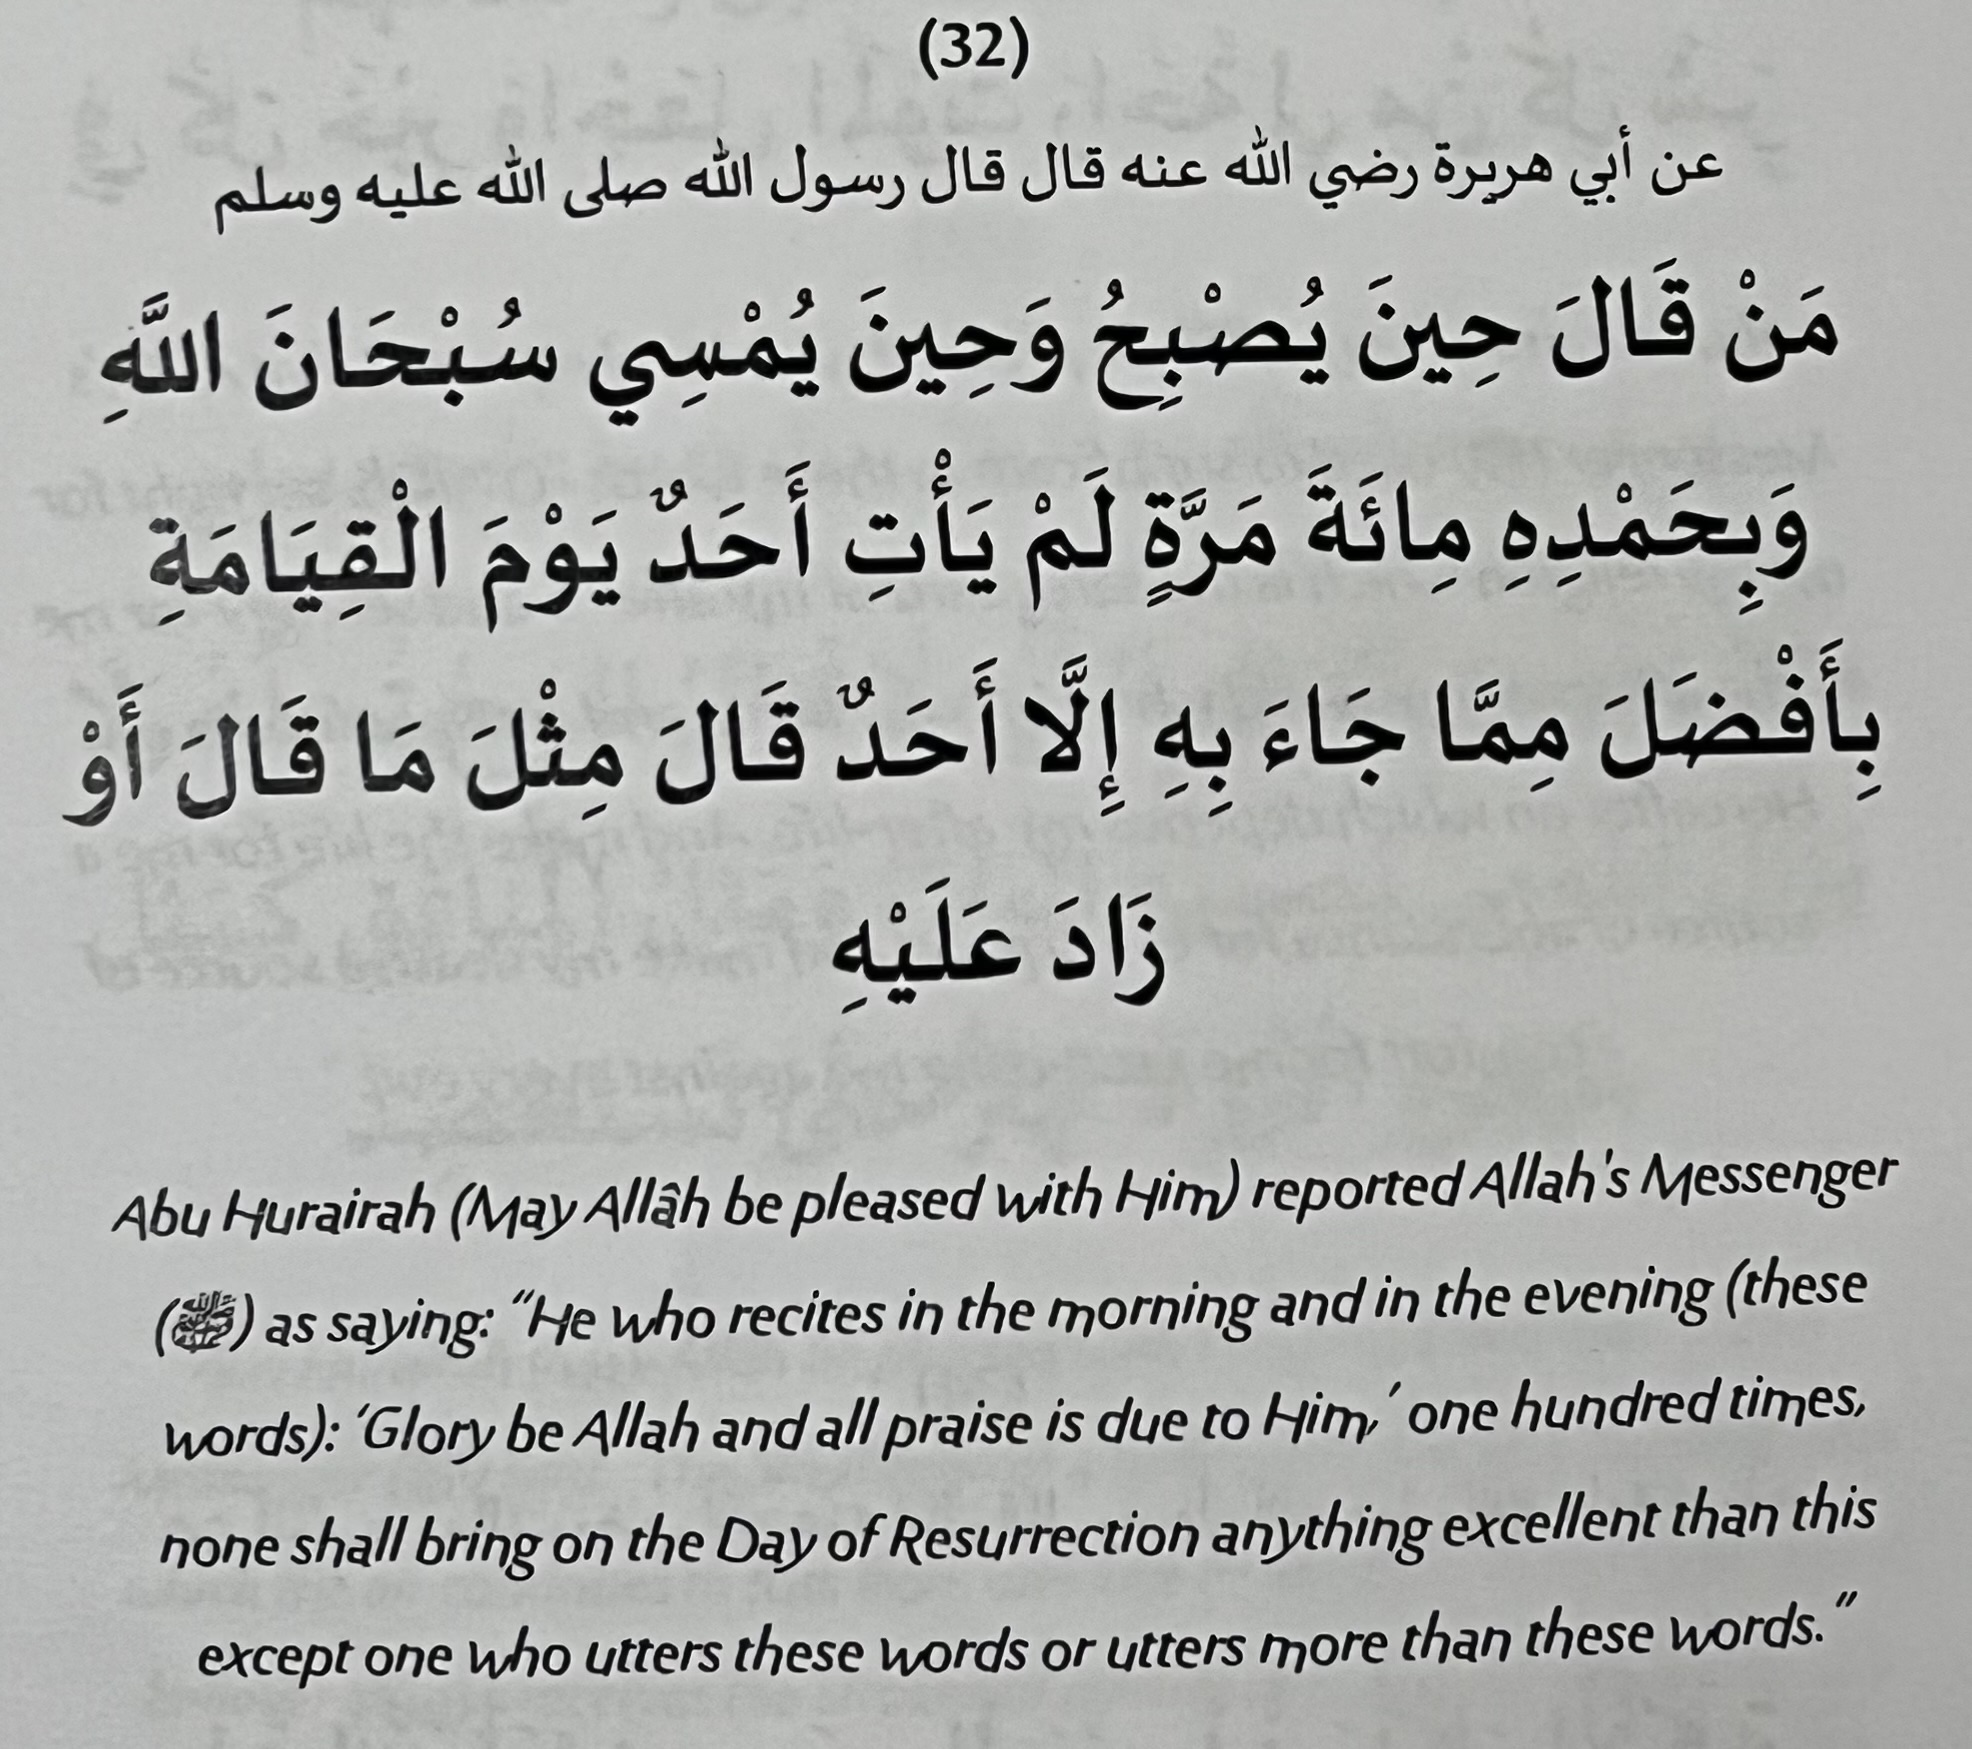 (32)
عن أبي هريرة رضي الله عنه قال قال رسول الله صلى الله عليه وسلم
مَنْ قَالَ حِينَ يُصْبِحُ وَحِينَ يُمْسِي سُبْحَانَ اللَّهِ
وَبِحَمْدِهِ مِائَةَ مَرَّةٍ لَمْ يَأْتِ أَحَدٌ يَوْمَ الْقِيَامَةِ
بِأَفْضَلَ مِمَّا جَاءَ بِهِ إِلَّا أَحَدٌ قَالَ مِثْلَ مَا قَالَ أَوْ
زَادَ عَلَيْهِ
Abu Hurairah (May Allâh be pleased with Him) reported Allah's Messenger
(ﷺ) as saying: “He who recites in the morning and in the evening (these
words): ‘Glory be Allah and all praise is due to Him,’ one hundred times,
none shall bring on the Day of Resurrection anything excellent than this
except one who utters these words or utters more than these words.”